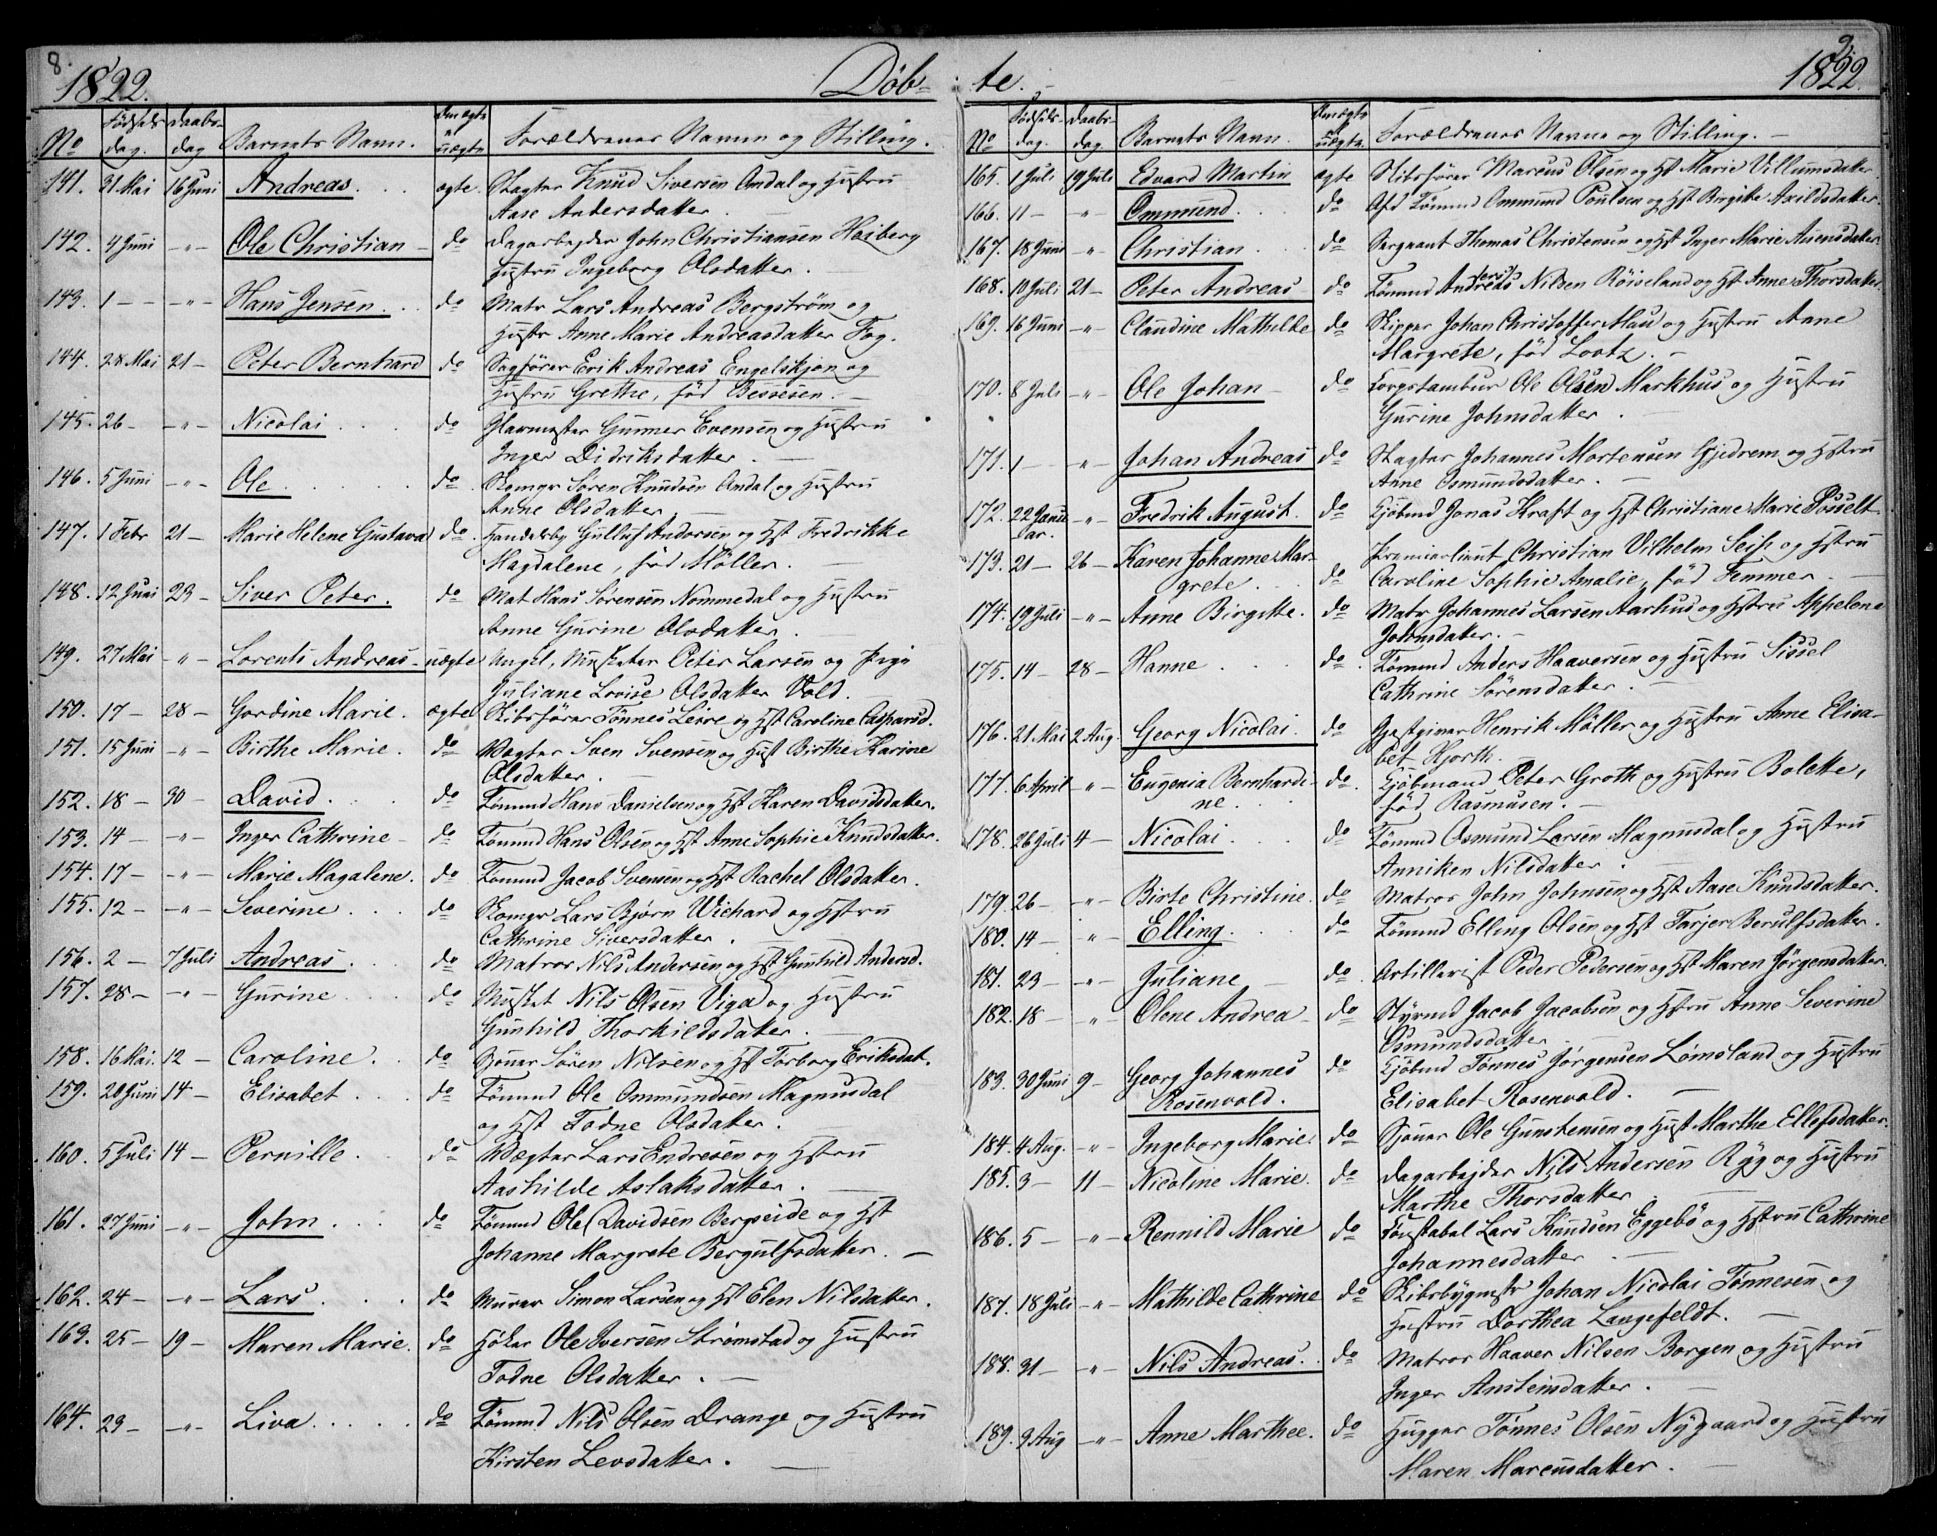 8.
1822. Døb-
No Fødsels dag. Daabs- dag Barnets Navn. Om ægte el uægte Forældrenes Navne og Stilling.
141. 31 Mai 16 Juni Andreas. ægte. Vægter Knud Siversen Andal og Hustru
Aase Andersdatter.
142. 4 Juni -"- Ole Christian do Dagarbejder John Christiansen Høiberg
Hustru Ingeborg Olsdatter.
143. 1 - -"- Hans Jensen. do Matr Lars Andreas Bergstrøm og
Hustr Anne Marie Andreasdatter Fog.
144. 28 Mai 21 - Peter Bernhard do Sagfører Erik Andreas Engelskjøn og
Hustru Grethe, fød Bessesen.
145. 26 - -"- Nicolai do Glasmester Gunner Evensen og Hustru
Inger Didriksdatter.
146. 5 Juni -"- Ole do Skomgr Søren Knudsen Andal og Hustru
Anne Olsdatter
147. 1 Febr 21 - Marie Helene Gustava do Handelsby Gulluf Andersen og Hst Fredrikke
Magdalene, fød Møller.
148. 12 Juni 23 - Siver Peter. do Mat Hans Sørensen Nommedal og Hustru
Anne Gurine Olsdatter.
149. 27 Mai -"- Lorents Andreas uægte Ungk, Musketer Peter Larsen og Pige
Juliane Lovise Olsdatter Vold.
150. 17 - 28 - Gordine Marie. ægte Skibsfører Tønnes Leire og Hst Caroline Caspersd.
151. 15 Juni -"- Birthe Marie. do Vægter Sven Svensen og Hust Birthe Karine
Olsdatter.
152. 18 - 30 - David. do Tømmd Hans Danielsen og Hst Karen Davidsdatter.
153. 14 - -"- Inger Cathrine do Tømmd Hans Olsen og Hst Anne Sophie Knudsdatter.
154. 17 - -"- Marie Magalene. do Tømmd Jacob Svensen og Hst Rachel Olsdatter.
155. 12 - -"- Severine. do Skomgr Lars Bjørn Wichard og Hstru
Cathrine Siversdatter.
156. 2 - 7 Juli Andreas. do Matros Nils Andersen og Hst Gunhild Andersd.
157. 28 - -"- Gurine do Musket Nils Olsen Viga og Hustru
Gunhild Thorkildsdatter.
158. 16 Mai. 12 - Caroline. do Sjouer Søren Nilsen og Hst Torborg Eriksdat.
159. 20 Juni 14 - Elisabet do Tømmd Ole Ommundsen Magnusdal
og Hst Todne Olsdatter.
160. 5 Juli 14 - Pernille. do Vægter Lars Endresen og Hstru
Aashilde Aslaksdatter.
161. 27 Juni -"- John do Tømmd Ole Davidsen Bergseide og Hst
Johanne Margrete Bergulfsdatter.
162. 24 - -"- Lars do Murer Simon Larsen og Hst Elen Nilsdatter.
163. 25 - 19 - Maren Marie. do Høker Ole Iversen Strømstad og Hustru
Todne Olsdatter.
164. 23 - -"- Liva do Tømmd Nils Olsen Drange og Hustru
Kirsten Levsdatter.
9.
te. 1822.
No Fødsels- dag. Daabs- dag. Barnets Navn. Om ægte el uægte. Forældrenes Navne og Stilling.
165. 1 Juli 19 Juli Edvard Martin ægte Skibsfører Marcus Olsen og Hst Marie Villumsdatter.
166. 11 - -"- Ommund. do Afd Tømmd Ommund Poulsen og Hst Birgitte Axildsdatter.
167. 18 Juni -"- Christian do Sergeant Thomas Christensen og Hst Inger Marie Auensdatter
168. 10 Juli 21 - Peter Andreas do Tømmd Andreas Nilsen Røiseland og Hst Anne Thorsdatter.
169. 16 Juni -"- Claudine Mathilde do Skipper Johan Christoffer Mau og Hustru Anne
Margrete, fød Lootz.
170. 8 Juli -"- Ole Johan do Corpstambur Ole Olsen Markhus og Hustru
Gurine Johnsdatter.
171. 1 - -"- Johan Andreas do Vægter Johannes Mortensen Gjedrem og Hstru
Anne Osmundsdatter.
172. 22 Janu- -"- Fredrik August. do Kjøbmd Jonas Kraft og Hst Christiane Marie Posselt
ar.
173. 21 - 26 - Karen Johanne Mar- Premierlieut Christian Vilhelm Seip og Hstru
grete. do Caroline Sophie Amalie, fød Femmer.
174. 19 Juli -"- Anne Birgitte. do Matr Johannes Larsen Aarhus og Hstru Appelone
Johnsdatter.
175. 14 - 28 - Hanne do Tømmd Anders Haaversen og Hustru Sissel
Cathrine Sørensdatter.
176. 21 Mai 2 Aug. Georg Nicolai. do Gjestgiver Henrik Møller og Hustru Anne Elisa-
bet Hjorth.
177. 6 April -"- Eugenia Bernhardi- do. Kjøbmand Peter Groth og Hustru Bolette,
ne. fød Rasmusen.
178. 26 Juli 4 - Nicolai do Tømmd Osmund Larsen Magnusdal og Hustru
Anniken Nilsdatter.
179. 26 - -"- Birte Christine. do Matros John Johnsen og Hst Aase Knudsdatter.
180. 14 - -"- Elling. do Tømmd Elling Olsen og Hst Tarjer Berulfsdatter.
181. 23 - -"- Juliane do Artillerist Peder Pedersen og Hst Maren Jørgensdatter.
182. 18 - -"- Olene Andrea do Styrmd Jacob Jacobsen og Hstru Anne Severine
Osmundsdatter
183. 30 Juni 9 - Georg Johannes do Kjøbmd Tønnes Jørgensen Lømsland og Hustru
Rosenvold. Elisabet Rosenvold.
184. 4 Aug. -"- Ingeborg Marie. do Sjouer Ole Gunstensen og Hust Marthe Ellefsdatter.
185. 3 - 11 - Nicoline Marie. do Dagarbejder Nils Andersen Ryg og Hustru
Marthe Thorsdatter
186. 5 - -"- Rennild Marie do Constabel Lars Knudsen Eggebø og Hstru Cathrine
Johannesdatter
187. 18 Juli -"- Mathilde Cathrine do Skibsbygmstr Johan Nicolai Tønnesen og
Hustru Dorthea Langefeldt.
188. 31 - -"- Nils Andreas. do Matros Haaver Nilsen Borgen og Hustru
Inger Anstensdatter.
189. 9 Aug -"- Anne Marthee. do Hugger Tønnes Olsen Nygaard og Hustru
Maren Marcusdatter.